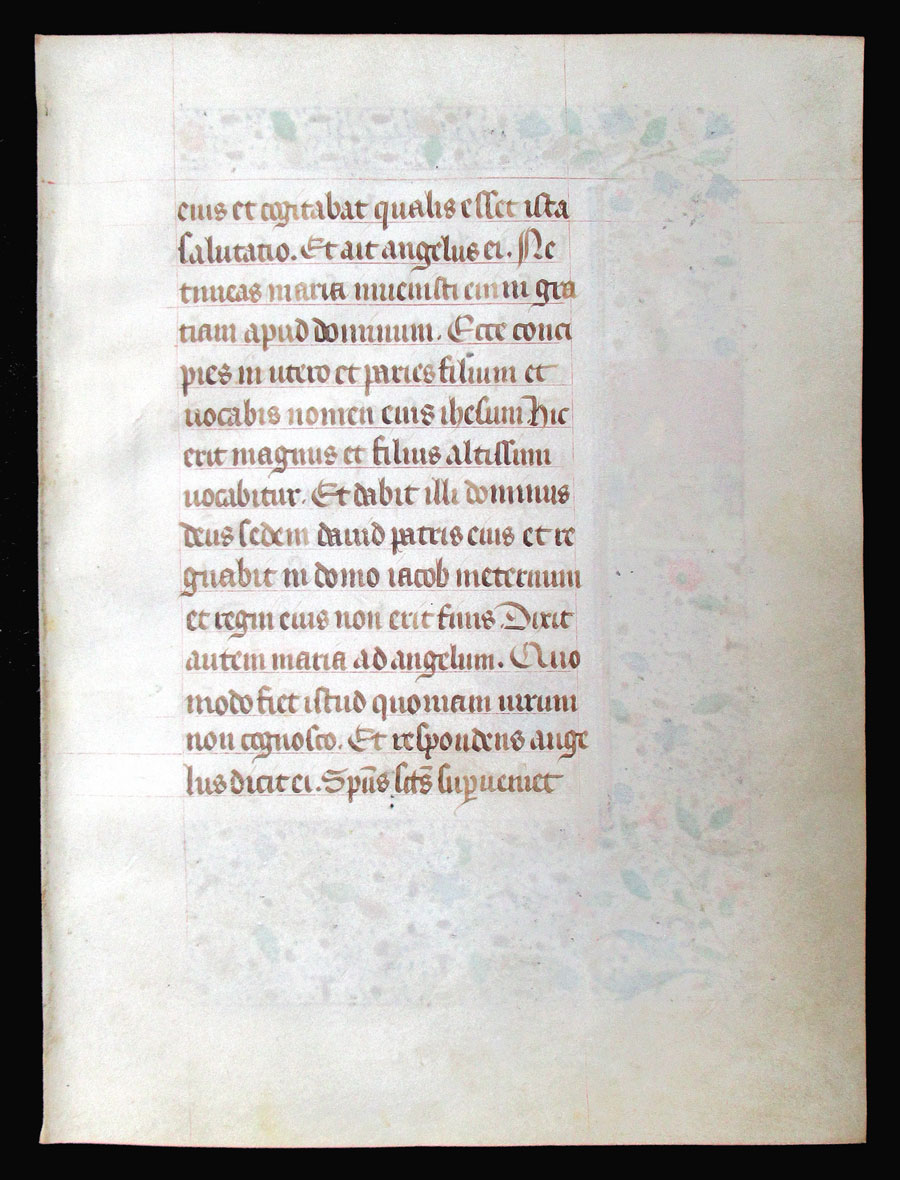 eius et cogitabat qualis esset ista
salutatio. Et ait angelus ei. Ne
timeas maria inuenisti enim gra
tiam apud dominum. Ecce conci
pies in utero et paries filium et
uocabis nomen eius ihesum Hic
erit magnus et filius altissimi
uocabitur. Et dabit illi dominus
deus sedem dauid patris eius et re
gnabit in domo iacob ineternum
et regni eius non erit finis Dixit
autem maria ad angelum. Quo
modo fiet istud quoniam uirum
non cognosco. Et respondens ange
lus dicit ei. Sp̄us sc̄ts sup̱ueniet